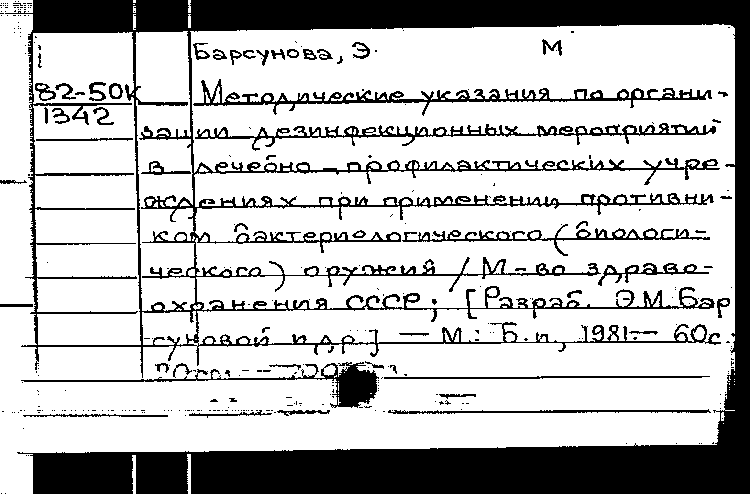 Барсунова, Э. М
82-50к
1342
Методические указания по органи-
зации дезинфекционных мероприятий
в лечебно-профилактических учре-
ждениях при применении противни-
ком бактериологического (биологи-
ческого) оружия / М-во здраво-
охранения СССР; [Разраб. Э.М. Бар
суновой и др.] — М.: Б.и., 1981.— 60с.;